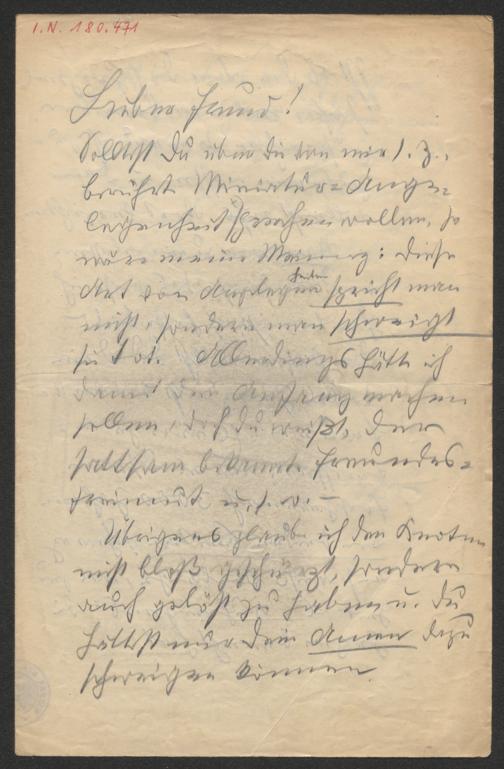 I.N. 180.471
Lieber Freund!
Solltest Du über die von mir s. Z.
berührte Miniatür-Ange-
legenheit sprechen wollen, so
wäre meine Meinung: diese
Art von Angelegenheiten spricht man
nicht, sondern man schweigt
sie tot. Allerdings hätte ich
damit den Anfang machen
sollen, doch du weißt, der
sattsam bekannte Freundes-
freimut u. s. w. –
Übrigens glaube ich den Knoten
nicht bloß geschürzt, sondern
auch gelöst zu haben u. Du
hättest nur dein Amen dazu
schweigen können.